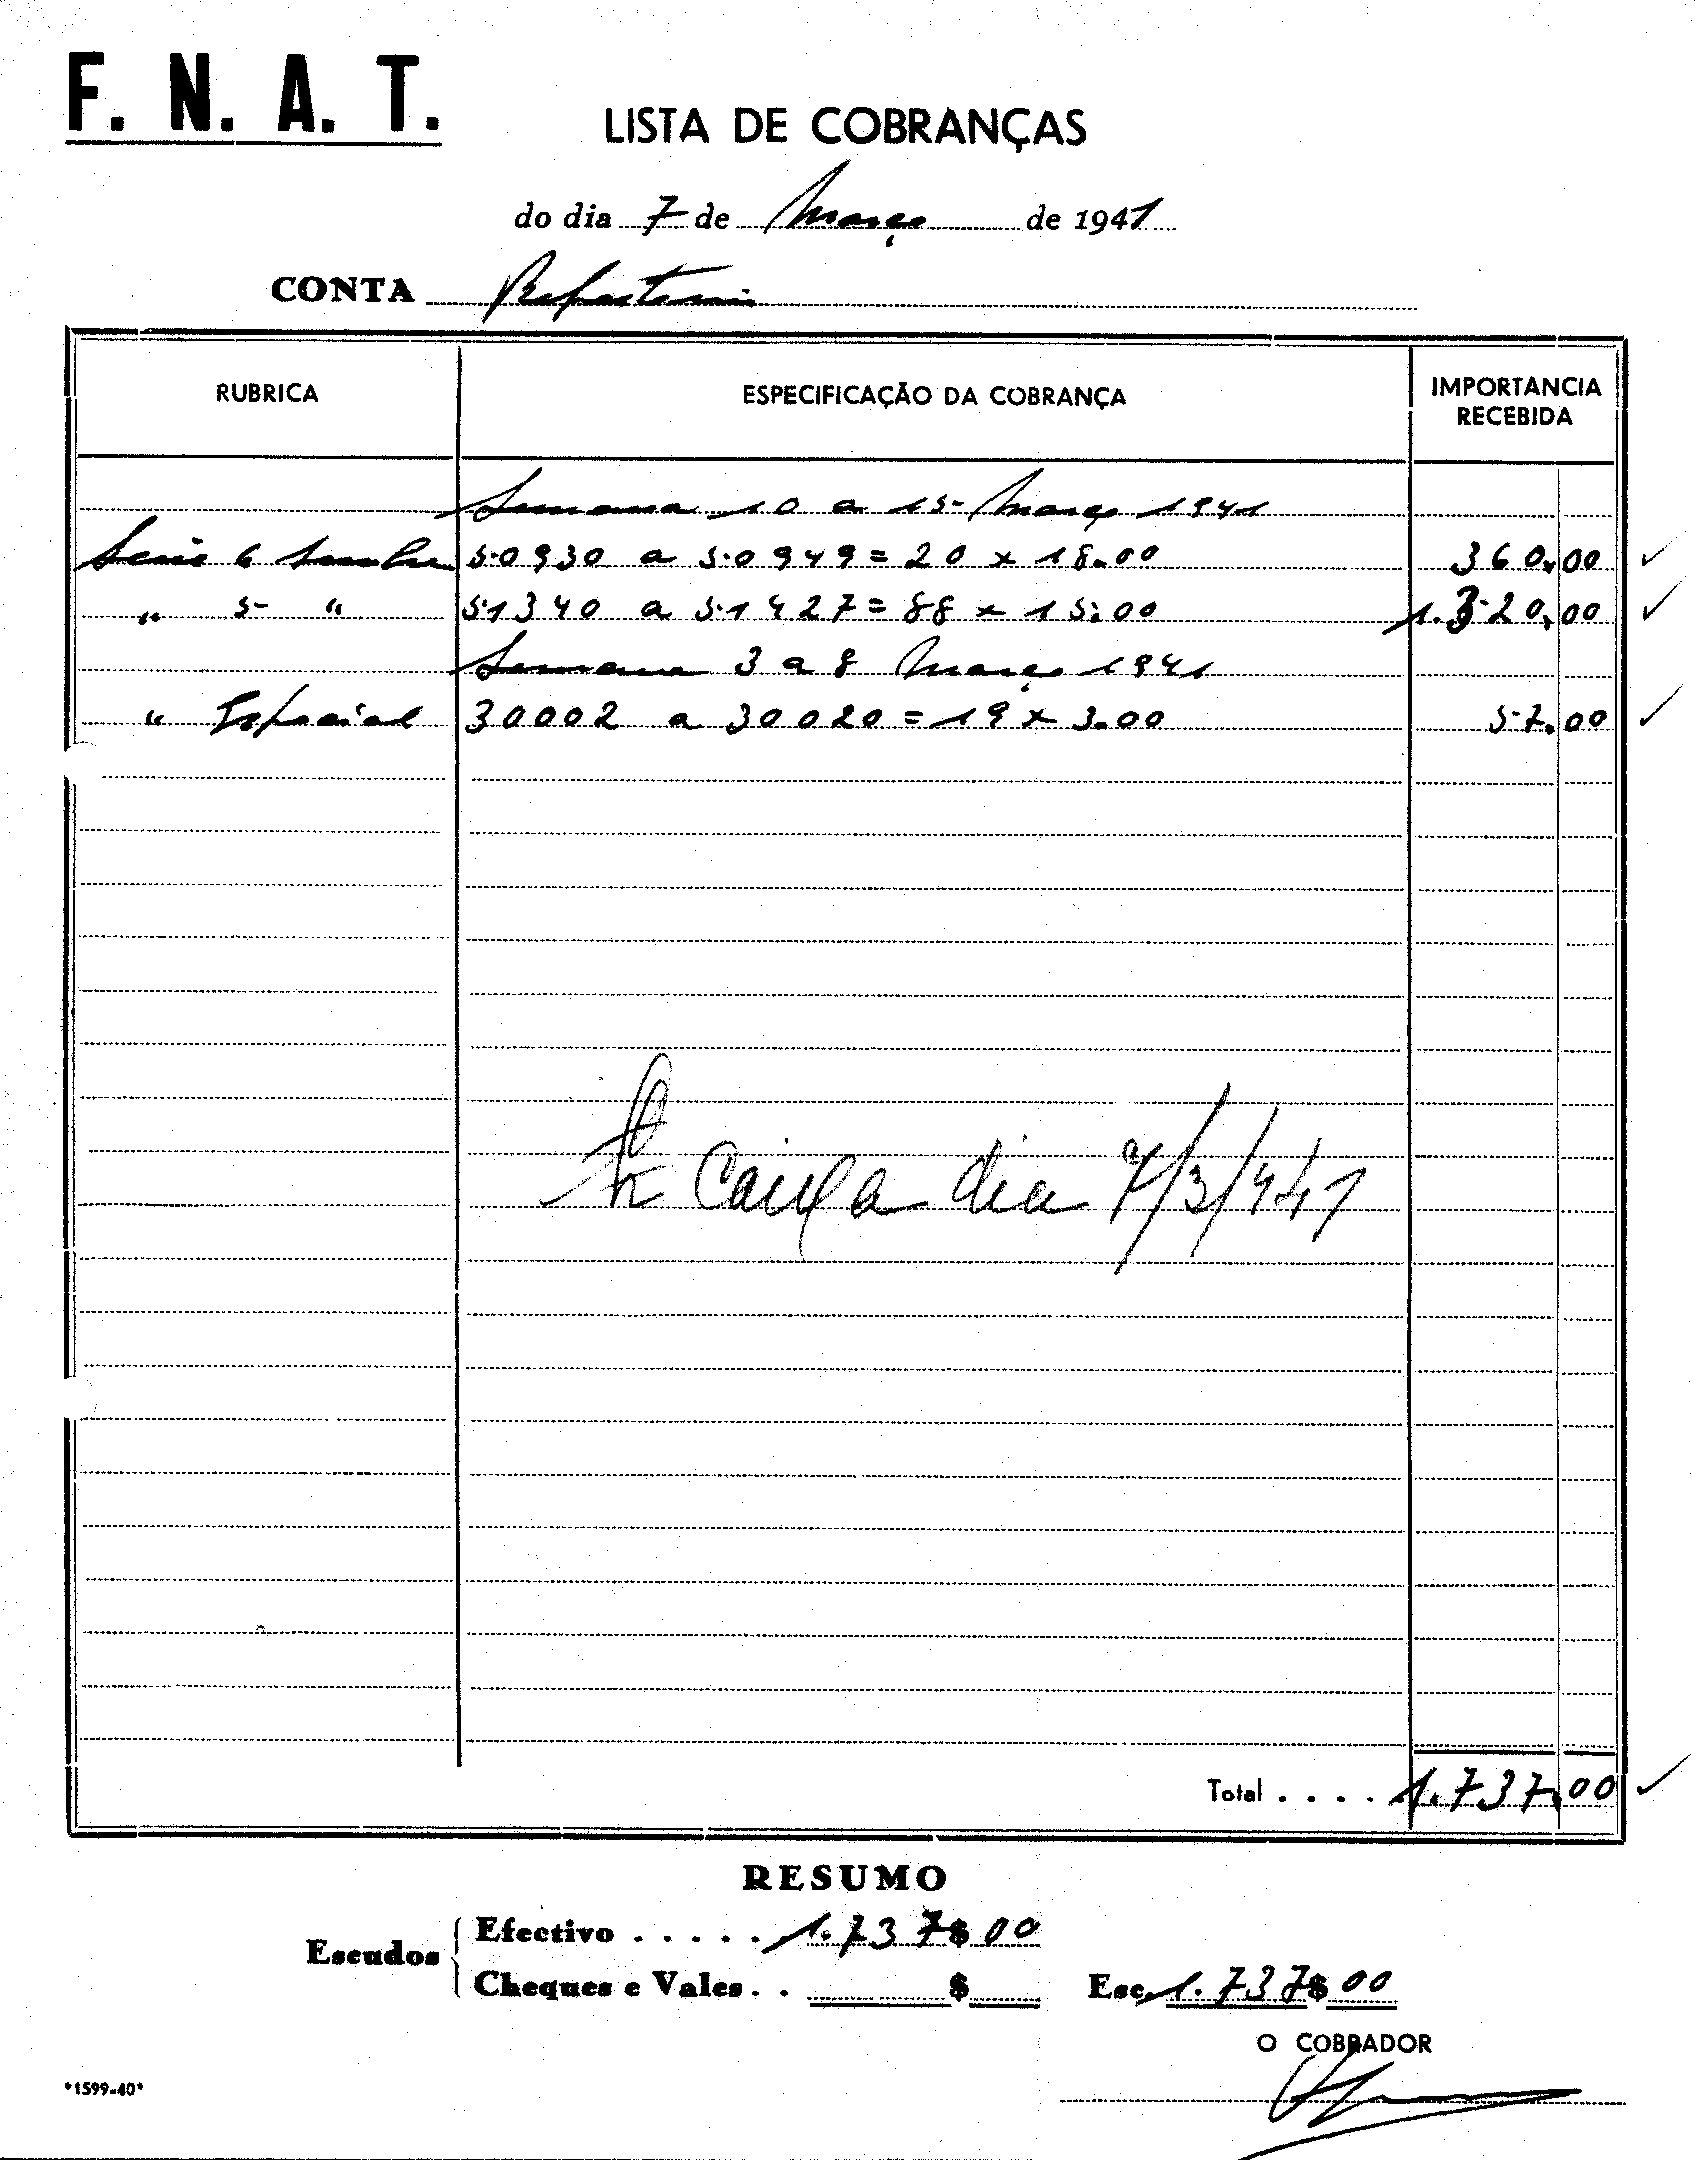 F. N. A. T.
LISTA DE COBRANÇAS
do dia 7 de Março de 1941
CONTA Refeitorio
RUBRICA ESPECIFICAÇÃO DA COBRANÇA IMPORTANCIA RECEBIDA
Semana 10 a 15 Março 1941
Serie 6 Senhas 50930 a 50949 = 20 x 18.00 360.00
" 5 " 51340 a 51427 = 88 x 15.00 1.320.00
Semana 3 a 8 Março 1941
" Especial 30002 a 30020 = 19 x 3.00 57.00
Caixa dia 7/3/941
Total . . . . 1.737.00
RESUMO
Escudos
Efectivo . . . . . 1.737$00
Cheques e Vales . . $ Esc. 1.737$00
O COBRADOR
*1599-40*